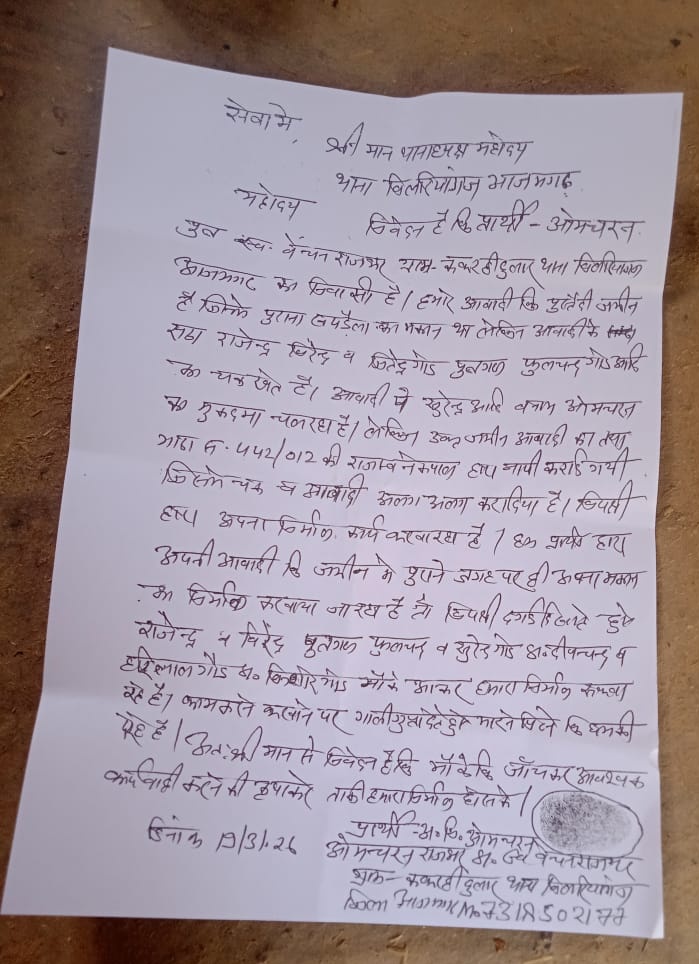 सेवा मे,
श्री मान थानाध्यक्ष महोदय
थाना बिलरियागंज आजमगढ़
महोदय
निवेदन है कि प्रार्थी - ओमचरन
पुत्र स्व. वेचन राजभर ग्राम- ककरही दुलार थाना बिलरियागंज
आजमगढ़ का निवासी है। हमारे आवादी कि पुस्तैदी जमीन
है जिसमे पुराना खपड़ैला का मकान था लेकिन आवादी के
सटा राजेन्द्र विरेन्द्र व जितेन्द्र गोड पुत्रगण फुलचन्द गोड आदि
का चक खेत है। आवादी पे सुरेन्द्र आदि बनाम ओमचरन
का मुकदमा चल रहा है। लेकिन उक्त जमीन आवादी का तथा
गाटा स. 442/012 की राजस्व लेखपाल द्वारा नापी कराई गयी
जिसमे चक व आवादी अलग अलग करा दिया है। विपक्षी
द्वारा अपना निर्माण कार्य करवा रहा है। हम प्रार्थी द्वारा
अपनी आवादी कि जमीन मे पुराने जगह पर ही अपना मकान
का निर्माण करवाया जा रहा है तो विपक्षी दबंगई दिखाते हुये
राजेन्द्र व विरेन्द्र पुत्रगण फुलचन्द व सुरेन्द्र गोड s/० दीपचन्द व
हरिलाल गौड s/० किशोर गोड मौके आकर हमारा निर्माण रूकवा
रहे है। काम करने करवाने पर गाली गुप्ता देते हुये मारने पिटने कि धमकी
दे रहे है। अतः श्री मान से निवेदन है कि मौके कि जाँच कर आवश्यक
कार्यवाही करने की कृपा करे ताकी हमारा निर्माण हो सके।
दिनांक 19/3/.26
प्रार्थी - अ. नि. ओमचरन
ओमचरन राजभर s/० स्व वेचन राजभर
ग्राम- ककरही दुलार थाना बिलरियागंज
जिला आजमगढ़ M०